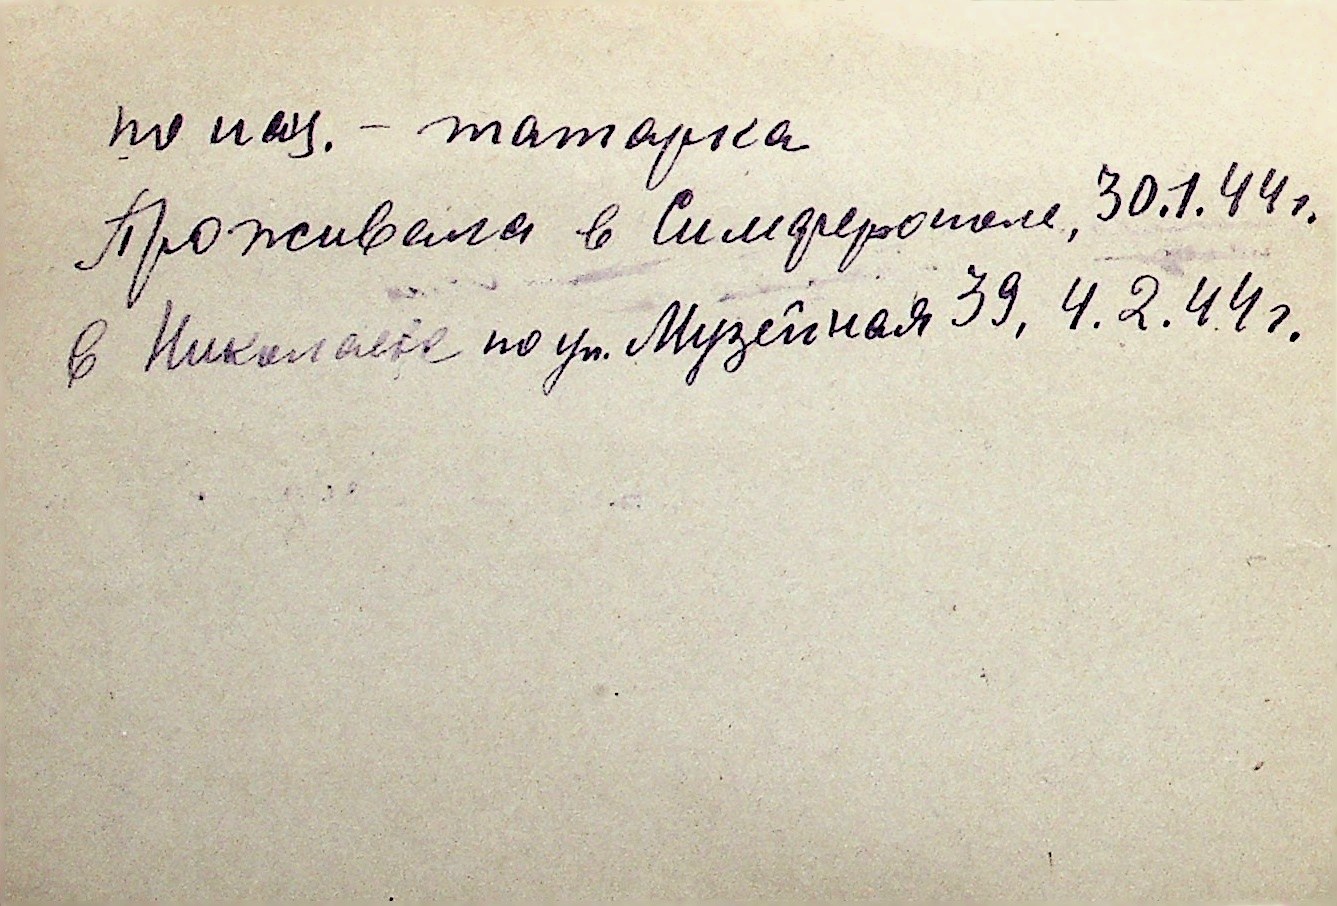 по нац. – татарка
Проживала в Симферополе, 30.1.44 г.
в Николаеве по ул. Музейная 39, 4.2.44 г.